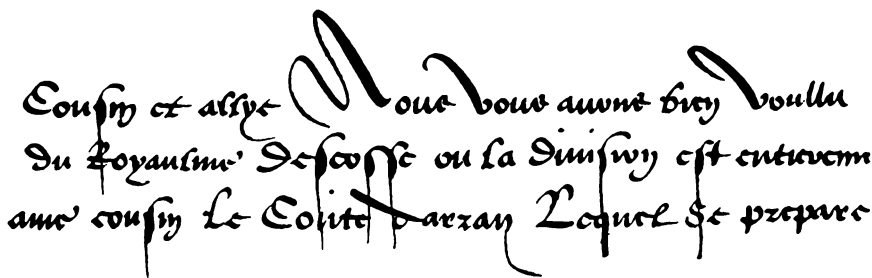 Cousin et allye Nous vous avons bien voullu
du Royaulme Descosse ou la division est entrevenu
ame cousin le Conte darran Lequel se prepare